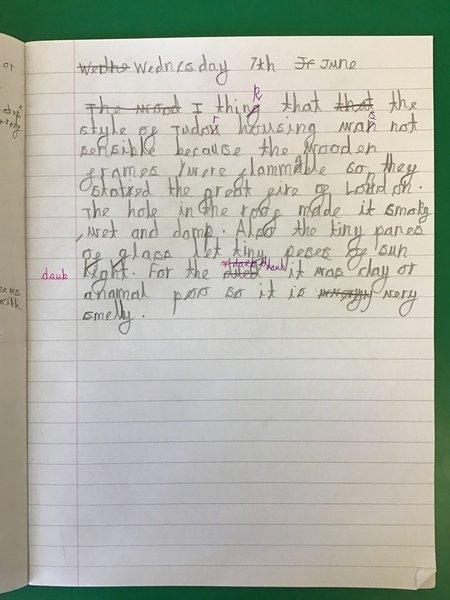 Wedne Wednesday 7th Jr June
The wood I thing k that that the
style of Tudor r housing wan s not
sensible because the wooden
frames were flammable so they
statred the great fire of London.
The hole in the roof made it smoky
, wet and damp. Also the tiny panes
of glass let tiny peses of sun
daub light. For the daub it was clay or
anamal poo so it is very
smelly.
or
with